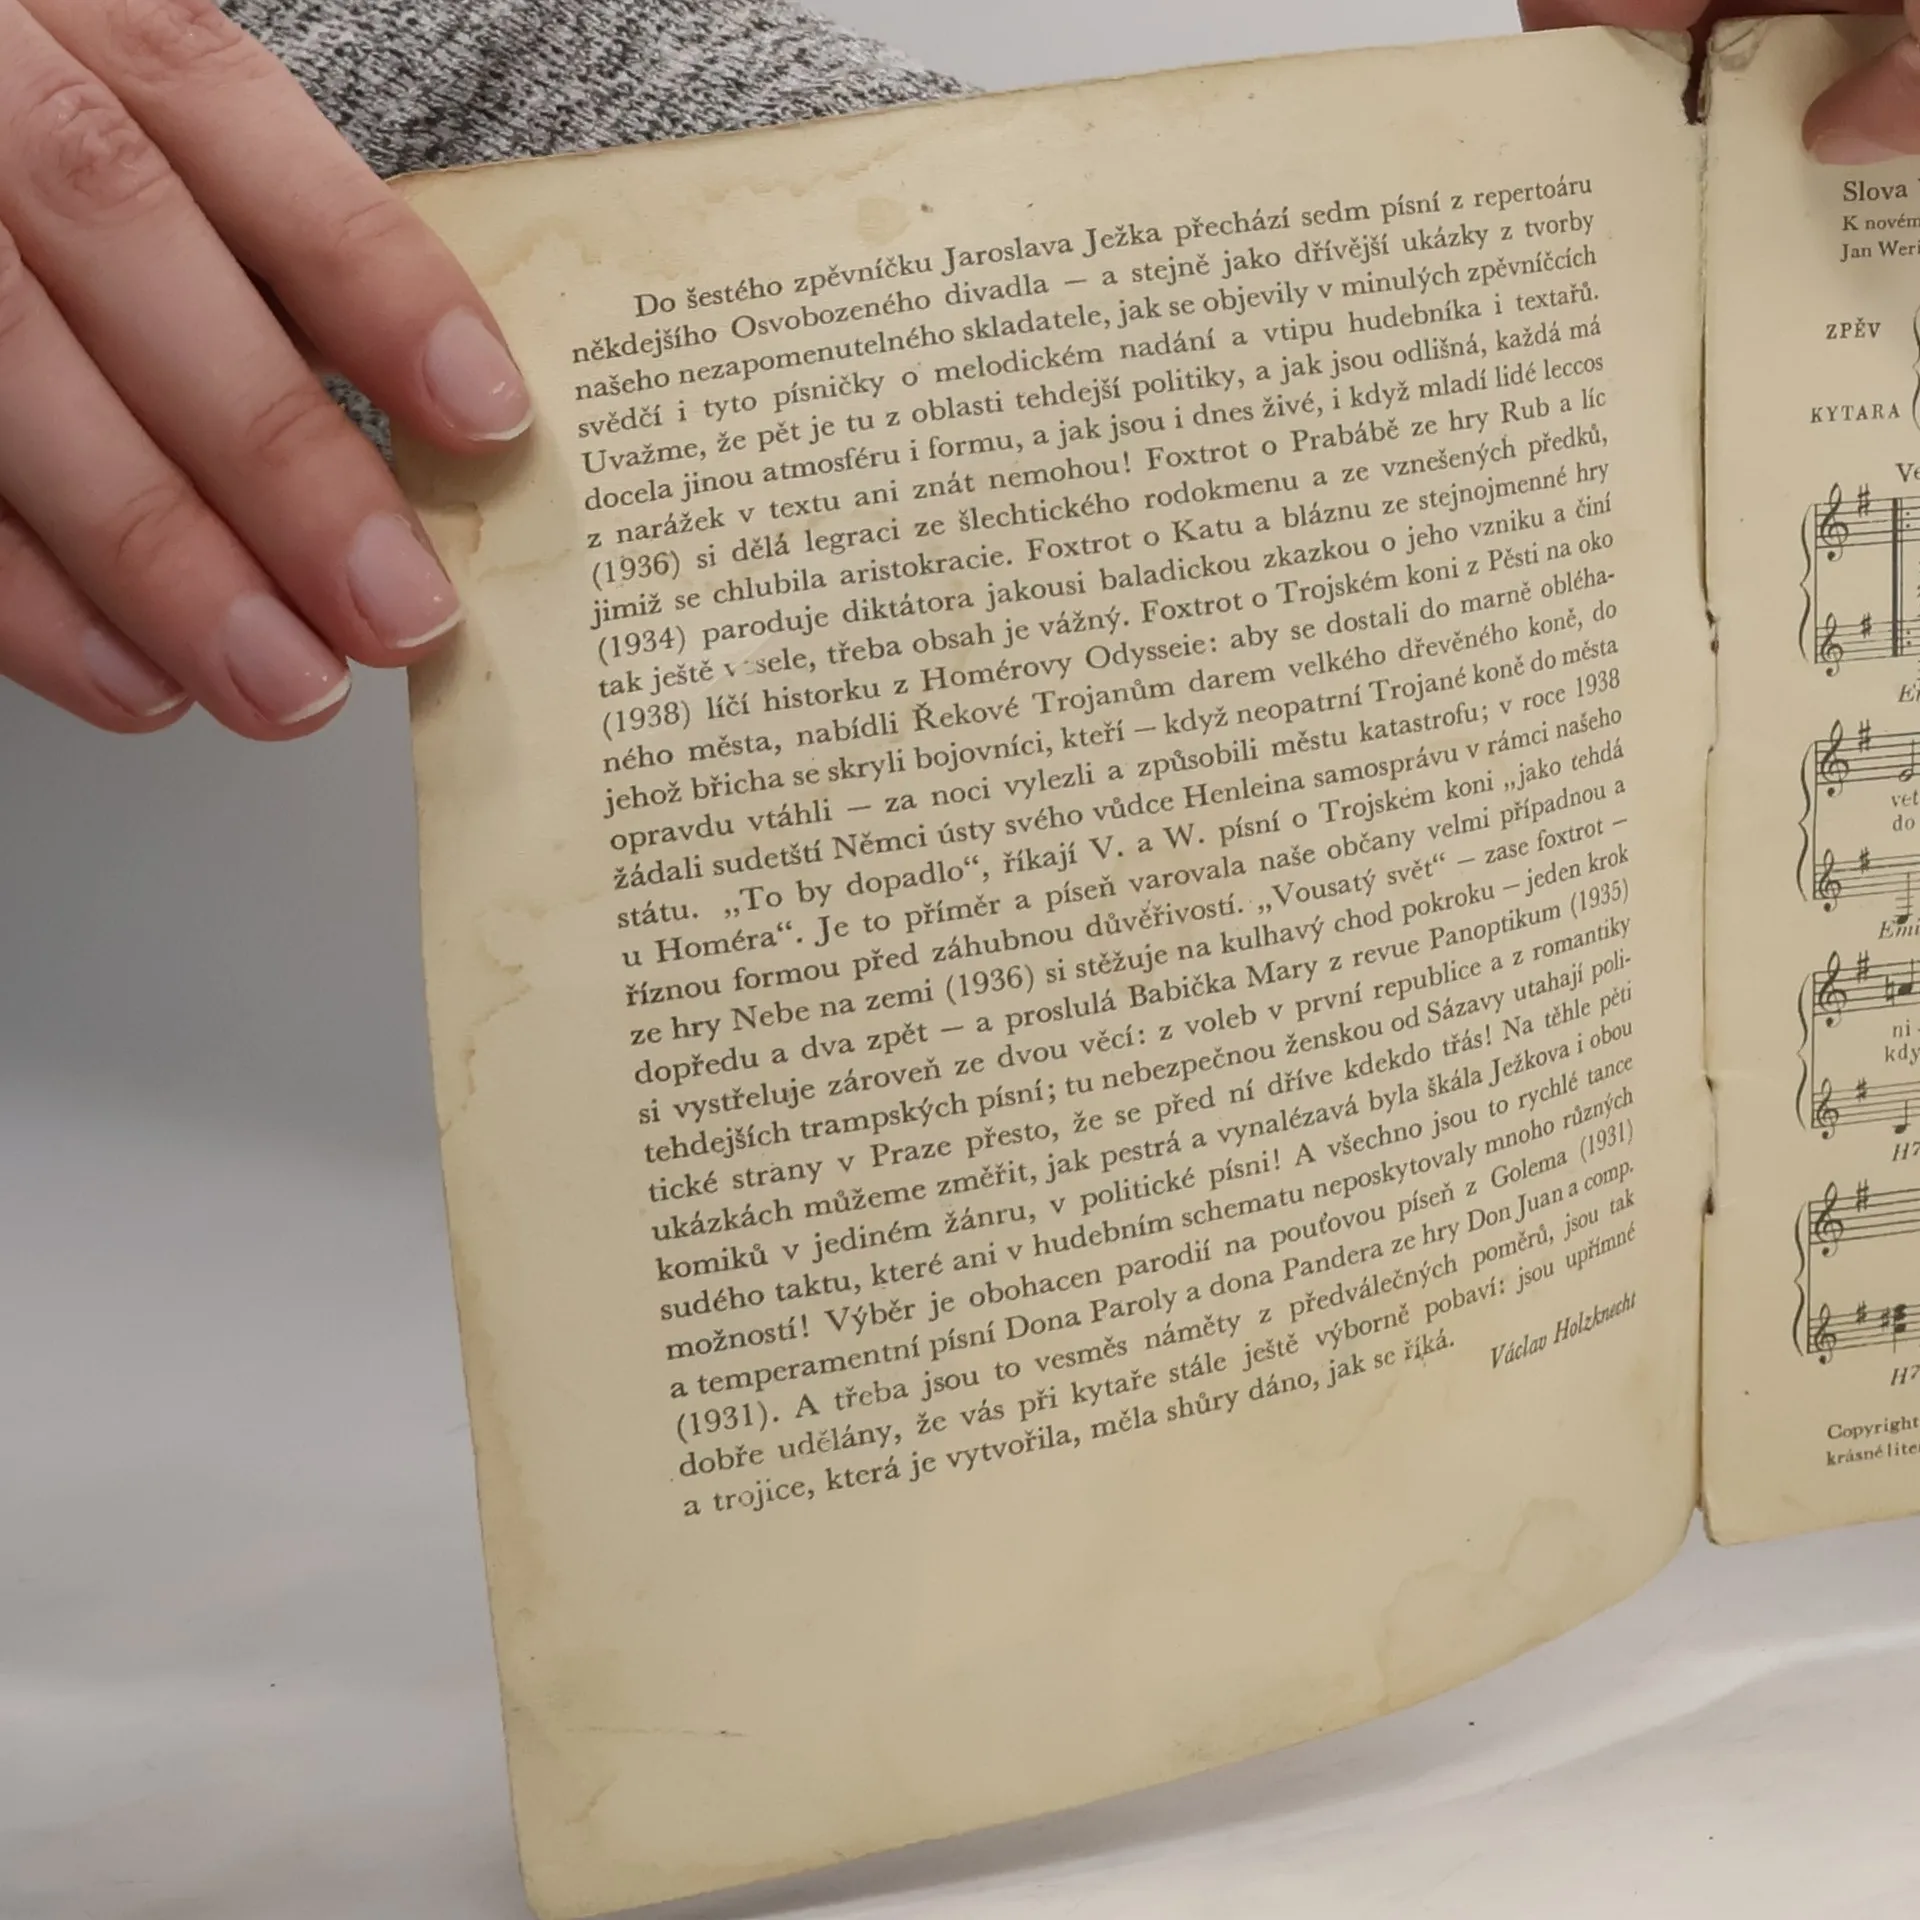 Do šestého zpěvníčku Jaroslava Ježka přechází sedm písní z repertoáru
někdejšího Osvobozeného divadla — a stejně jako dřívější ukázky z tvorby
našeho nezapomenutelného skladatele, jak se objevily v minulých zpěvníčcích
svědčí i tyto písničky o melodickém nadání a vtipu hudebníka i textařů.
Uvažme, že pět je tu z oblasti tehdejší politiky, a jak jsou odlišná, každá má
docela jinou atmosféru i formu, a jak jsou i dnes živé, i když mladí lidé leccos
z narážek v textu ani znát nemohou! Foxtrot o Prabábě ze hry Rub a líc
(1936) si dělá legraci ze šlechtického rodokmenu a ze vznešených předků,
jimiž se chlubila aristokracie. Foxtrot o Katu a bláznu ze stejnojmenné hry
(1934) paroduje diktátora jakousi baladickou zkazkou o jeho vzniku a činí
tak ještě v sele, třeba obsah je vážný. Foxtrot o Trojském koni z Pěsti na oko
(1938) líčí historku z Homérovy Odysseie: aby se dostali do marně obléha-
ného města, nabídli Řekové Trojanům darem velkého dřevěného koně, do
jehož břicha se skryli bojovníci, kteří — když neopatrní Trojané koně do města
opravdu vtáhli — za noci vylezli a způsobili městu katastrofu; v roce 1938
žádali sudetští Němci ústy svého vůdce Henleina samosprávu v rámci našeho
státu. „To by dopadlo“, říkají V. a W. písní o Trojském koni „jako tehdá
u Homéra“. Je to příměr a píseň varovala naše občany velmi případnou a
říznou formou před záhubnou důvěřivostí. „Vousatý svět“ — zase foxtrot —
ze hry Nebe na zemi (1936) si stěžuje na kulhavý chod pokroku — jeden krok
dopředu a dva zpět — a proslulá Babička Mary z revue Panoptikum (1935)
si vystřeluje zároveň ze dvou věcí: z voleb v první republice a z romantiky
tehdejších trampských písní; tu nebezpečnou ženskou od Sázavy utahají poli-
tické strany v Praze přesto, že se před ní dříve kdekdo třás! Na těhle pěti
ukázkách můžeme změřit, jak pestrá a vynalézavá byla škála Ježkova i obou
komiků v jediném žánru, v politické písni! A všechno jsou to rychlé tance
sudého taktu, které ani v hudebním schematu neposkytovaly mnoho různých
možností! Výběr je obohacen parodií na pouťovou píseň z Golema (1931)
a temperamentní písní Dona Paroly a dona Pandera ze hry Don Juan a comp.
(1931). A třeba jsou to vesměs náměty z předválečných poměrů, jsou tak
dobře udělány, že vás při kytaře stále ještě výborně pobaví: jsou upřímné
a trojice, která je vytvořila, měla shůry dáno, jak se říká.
Václav Holzknecht
Slova
K novém
Jan Weri
ZPĚV
KYTARA
Ve
vet
do
Emi
ni
kdy
H7
H7
Copyright
krásné lite